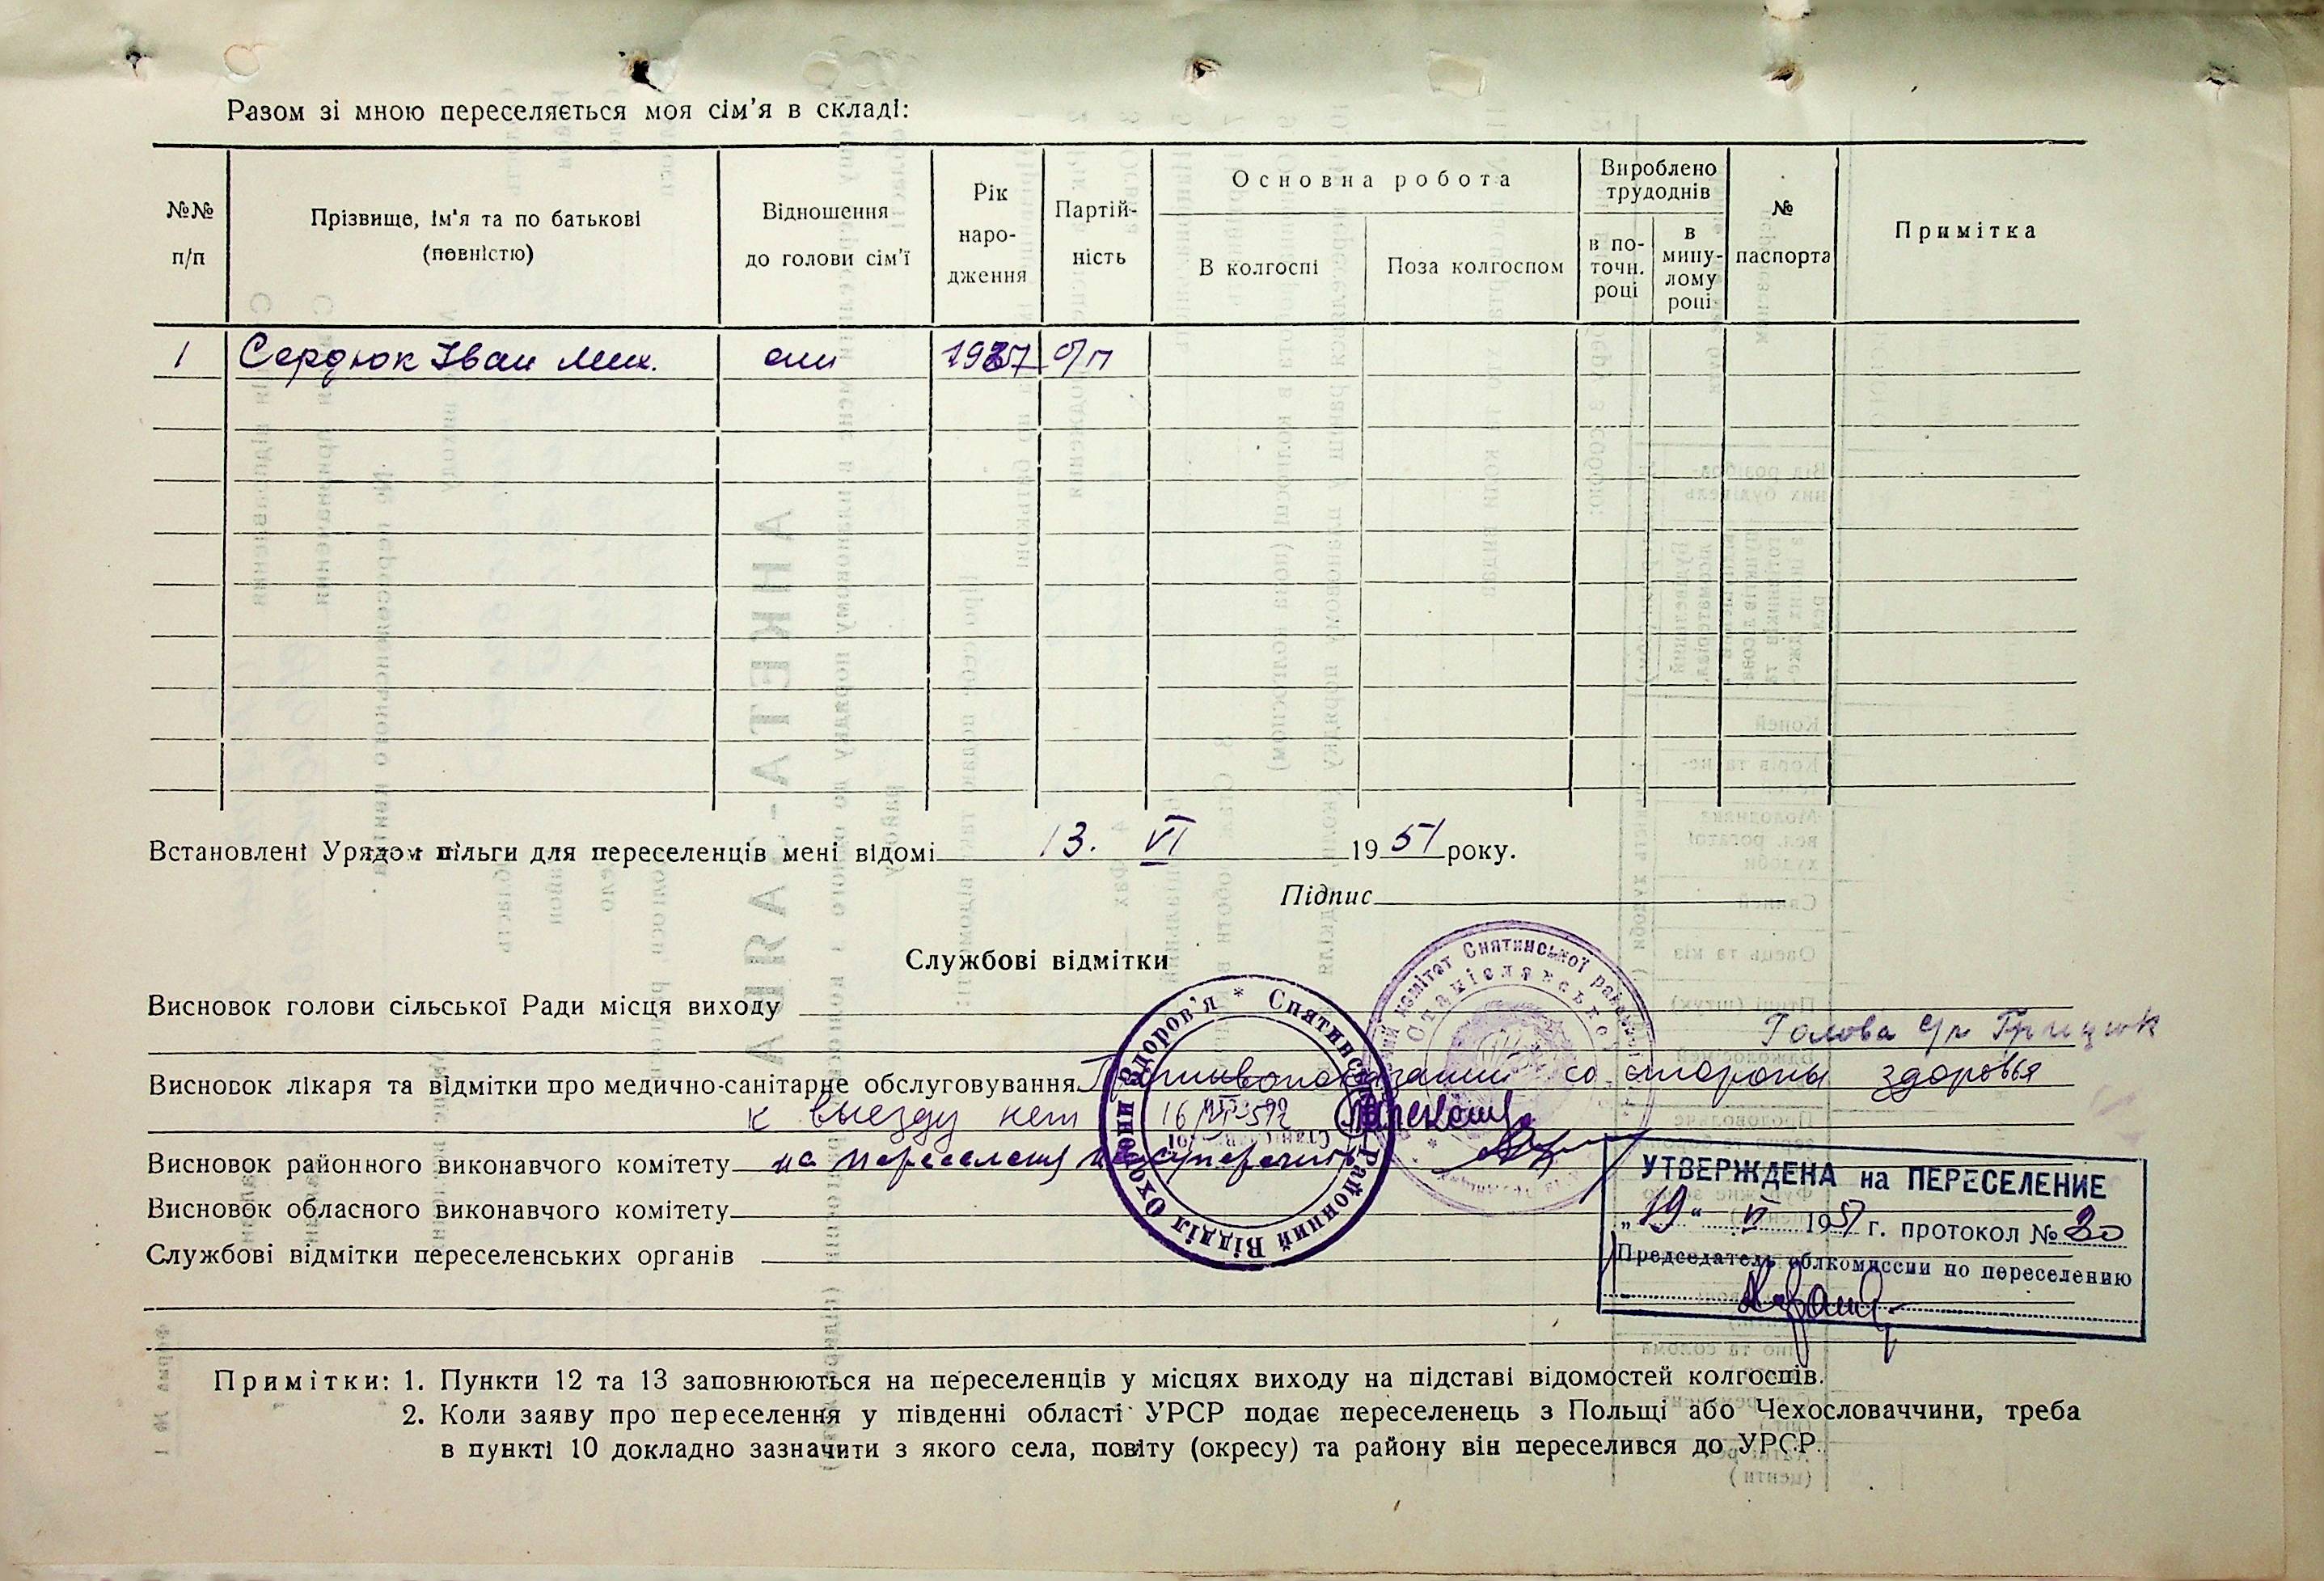 Разом зі мною переселяється моя сім'я в складі:
№№ п/п
Прізвище, ім'я та по батькові (повністю)
Відношення до голови сім'ї
Рік народження
Партійність
Основна робота
В колгоспі
Поза колгоспом
Вироблено трудоднів
в поточн. році
в минулому році
№ паспорта
Примітка
1 Сердюк Іван Мих. син 1937 б/п
Встановлені Урядом пільги для переселенців мені відомі 13. VI 1951 року.
Підпис
Службові відмітки
Висновок голови сільської Ради місця виходу
Голова с/р Грицюк
Висновок лікаря та відмітки про медично-санітарне обслуговування Противопоказаний со стороны здоровья
к выезду нет 16/VI
Висновок районного виконавчого комітету на переселення
Висновок обласного виконавчого комітету
Службові відмітки переселенських органів
Снятинський Районний Відділ Охорони Здоров'я *
комітет Снятинської районної
Станіславської
УТВЕРЖДЕНА на ПЕРЕСЕЛЕНИЕ
„19“ VI 1951 г. протокол № 20
Председатель облкомиссии по переселению
Примітки: 1. Пункти 12 та 13 заповнюються на переселенців у місцях виходу на підставі відомостей колгоспів.
2. Коли заяву про переселення у південні області УРСР подає переселенець з Польщі або Чехословаччини, треба
в пункті 10 докладно зазначити з якого села, повіту (окресу) та району він переселився до УРСР.